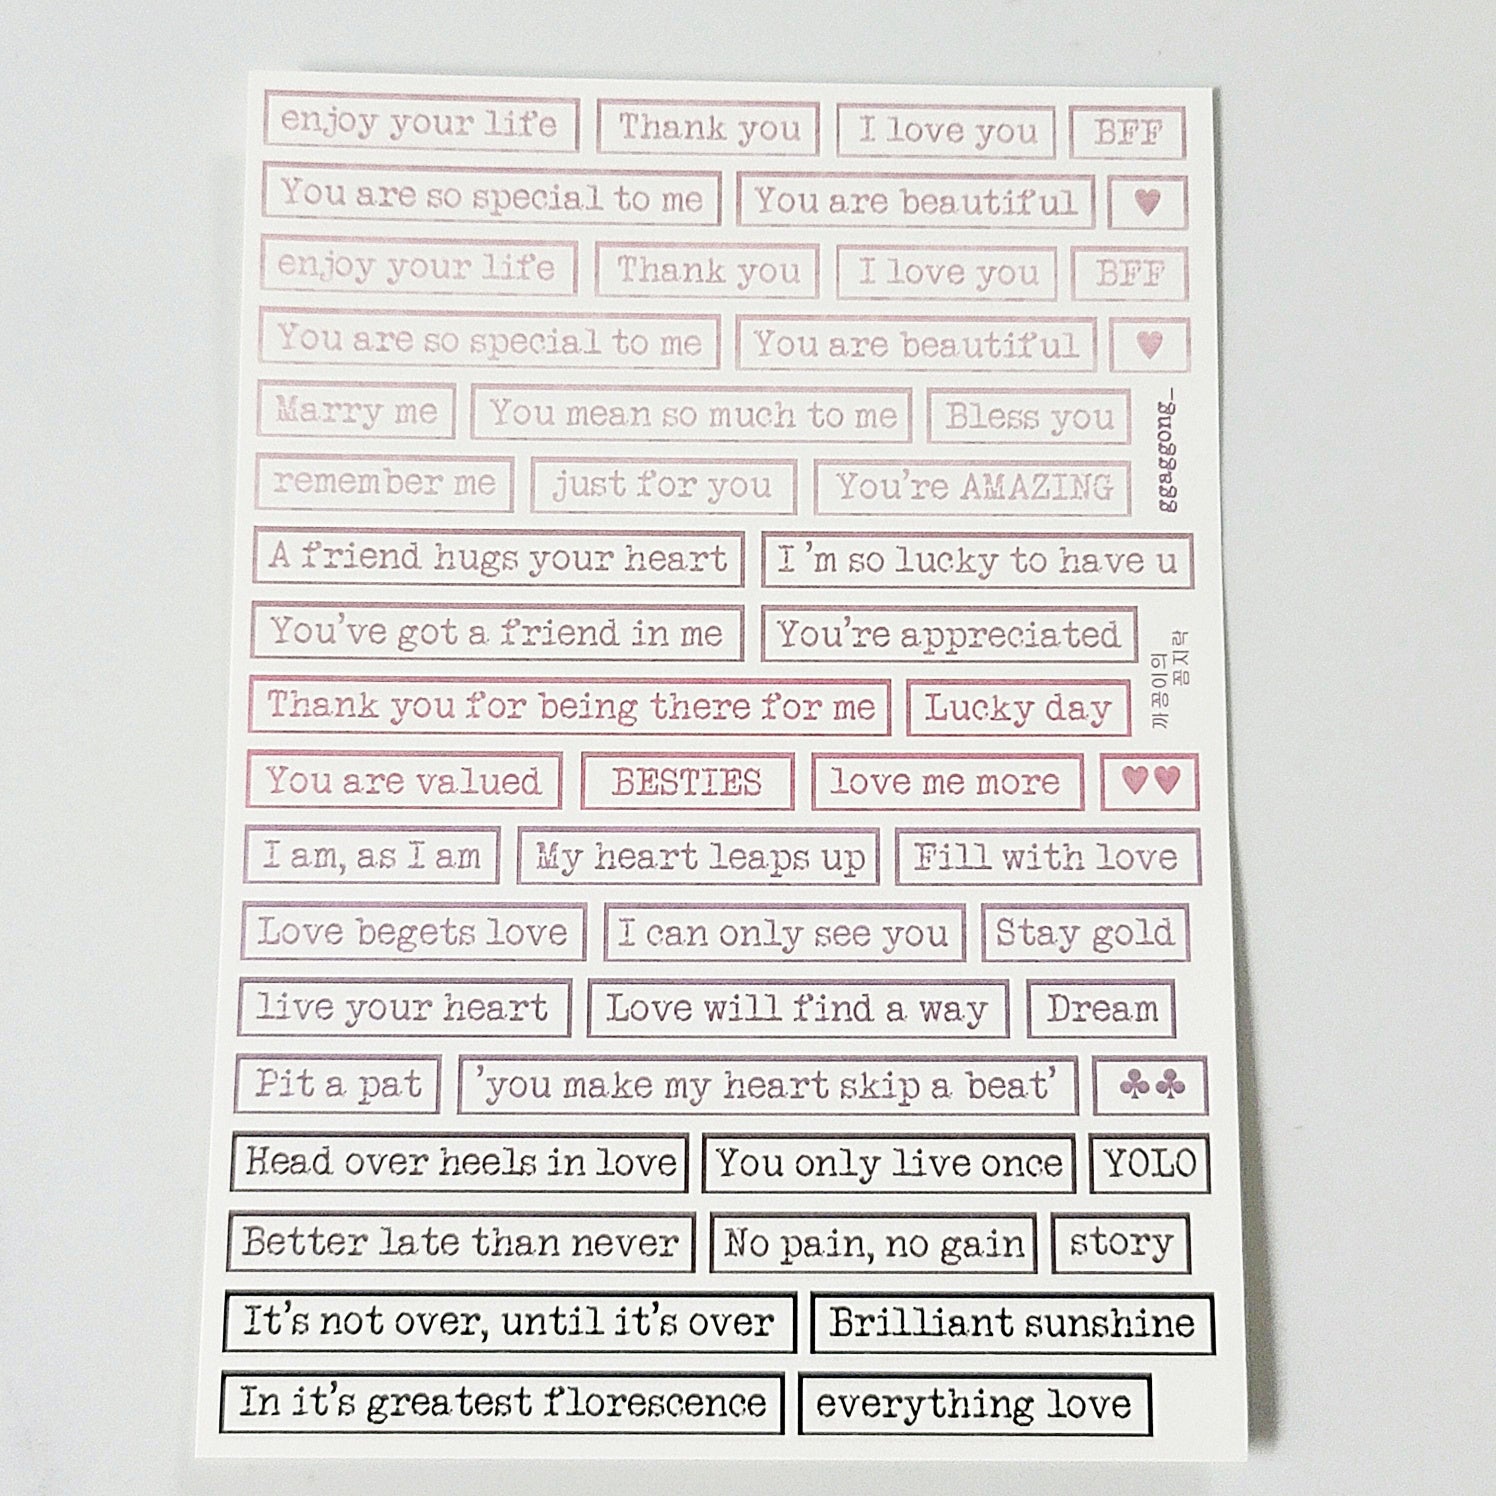 enjoy your life Thank you I love you BFF
You are so special to me You are beautiful ♥
enjoy your life Thank you I love you BFF
You are so special to me You are beautiful ♥
Marry me You mean so much to me Bless you
ggaggong_
remember me just for you You're AMAZING
A friend hugs your heart I'm so lucky to have u
You've got a friend in me You're appreciated
Thank you for being there for me Lucky day
You are valued BESTIES love me more ♥♥
I am, as I am My heart leaps up Fill with love
Love begets love I can only see you Stay gold
live your heart Love will find a way Dream
Pit a pat 'you make my heart skip a beat' ♣♣
Head over heels in love You only live once YOLO
Better late than never No pain, no gain story
It's not over, until it's over Brilliant sunshine
In it's greatest florescence everything love